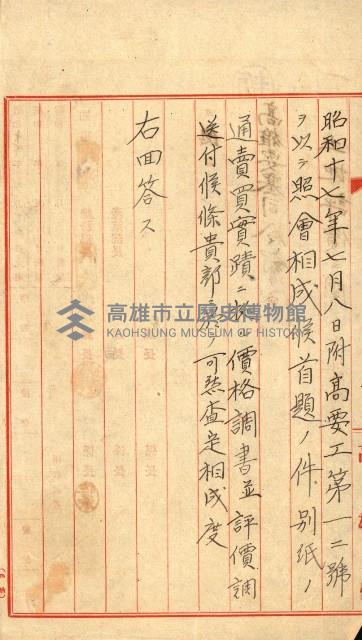 昭和十七年七月八日附高要工第一二號
ヲ以テ照會相成候首題ノ件別紙ノ
通賣買實蹟ニ依 價格調書並評價調
送付候條貴部ニ於 可然査定相成度
右回答ス
高雄市立歷史博物館
KAOHSIUNG MUSEUM OF HISTORY